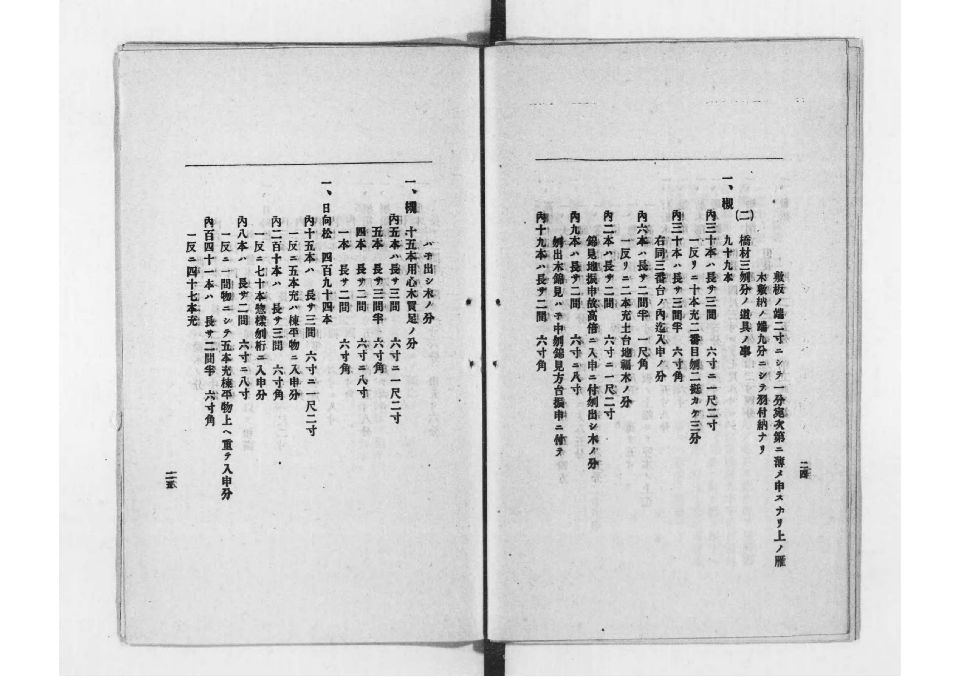 敷板ノ端二寸ニシテ一分宛次第ニ薄メ申スナリ上ノ雁
木敷納ノ端九分ニシテ羽付納ナリ
(二) 橋材三刎分ノ道具ノ事
一、槻 九十九本
內三十本ハ長サ三間 六寸ニ一尺二寸
一反リニ十本充二番目刎二挺カケ三分
內三十本ハ長サ三間半 六寸角
右同三番台ノ內迄入申ノ分
內六本ハ長サ二間半 一尺角
一反リニ二本充土台地福木ノ分
內二本ハ長サ二間 六寸ニ一尺二寸
錦見地振申故高倍ニ入申ニ付刎出シ木ノ分
內九本ハ長サ二間 六寸ニ八寸
刎出木錦見ハ手中刎錦見方台振申ニ付テ
內十九本ハ長サ二間 六寸角
二四
ハネ出シ木ノ分
一、槻 十五本用心木買足ノ分
內五本ハ長サ三間 六寸ニ一尺二寸
五本 長サ三間半 六寸角
四本 長サ二間 六寸ニ八寸
一本 長サ二間 六寸角
一、日向松 四百九十四本
內十五本ハ 長サ三間 六寸ニ一尺二寸
一反ニ五本充ハ棟平物ニ入申分
內二百十本ハ 長サ三間 六寸角
一反ニ七十本惣樣刎桁ニ入申分
內八本ハ 長サ二間 六寸ニ八寸
一反ニ一間物ニシテ五本充棟平物上ヘ重テ入申分
內百四十一本ハ 長サ二間半 六寸角
一反ニ四十七本充
二五